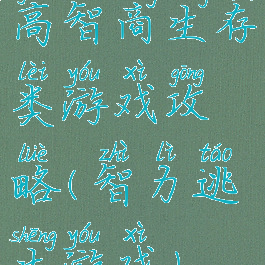 高智商生存
lèi yóu xì gōng
类游戏攻
lüè zhì lì táo
略(智力逃
shēng yóu xì